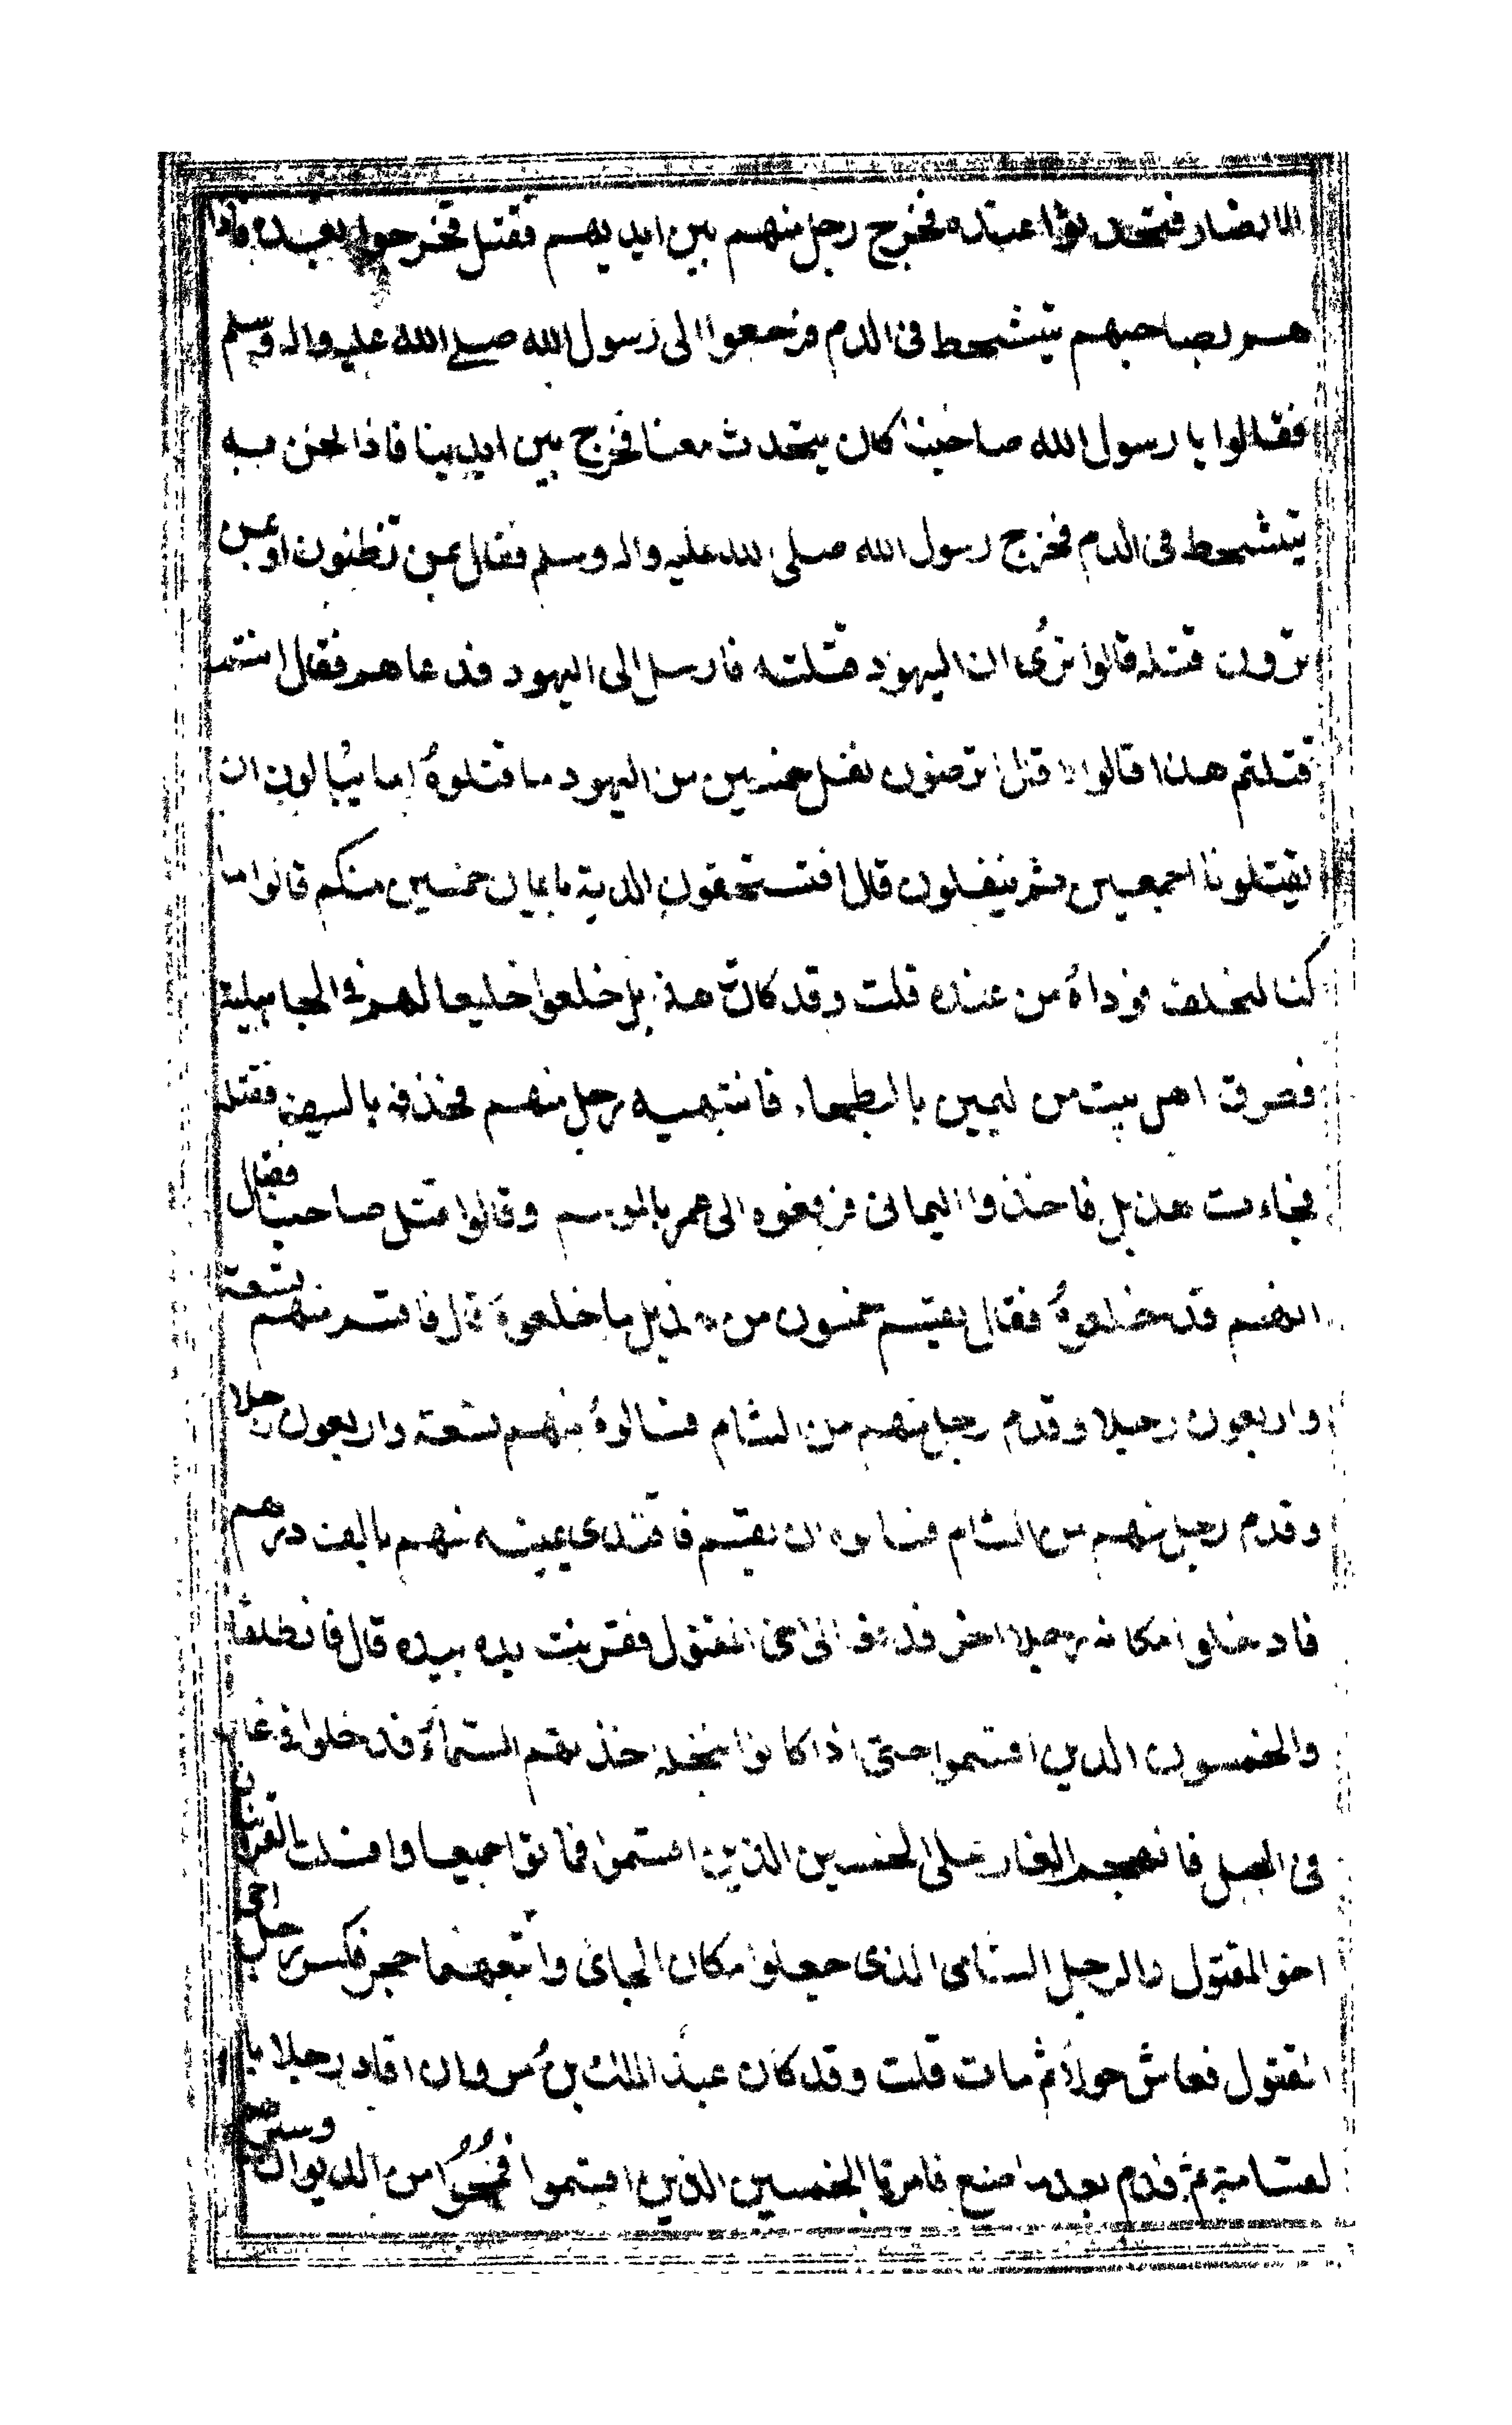 الانصار فتحدثوا عنده فخرج رجل منهم بين ايديهم فقتل فخرجوا بعده فاذا
هم بصاحبهم يتشحط فى الدم فرجعوا الى رسول الله صلى الله عليه واله وسلم
فقالوا يا رسول الله صاحبنا كان يتحدث معنا فخرج بين ايدينا فاذا نحن به
يتشحط فى الدم فخرج رسول الله صلى الله عليه واله وسلم فقال بمن تظنون او بمن
ترون قتله قالوا نرى ان اليهود قتلته فارسل الى اليهود فدعاهم فقال انتم
قتلتم هذا قالوا لا قال اترضون نفل خمسين من اليهود ما قتلوه ما يبالون ان
يقتلونا اجمعين ثم ينفلون قال افتستحقون الدية بايمان خمسين منكم قالوا ما
كنا لنحلف فوداه من عنده قلت وقد كانت هذيل خلعوا خليعا لهم فى الجاهلية
فطرق اهل بيت من اليمن بالبطحاء فانتبه له رجل منهم فحذفه بالسيف فقتله
فجاءت هذيل فاخذوا اليمانى فرفعوه الى عمر بالموسم وقالوا قتل صاحبنا فقال
انهم قد خلعوه فقال يقسم خمسون من هذيل ما خلعوه قال فاقسم منهم تسعة
واربعون رجلا وقدم رجل منهم من الشام فسالوه منهم تسعة واربعون رجلا
وقدم رجل منهم من الشام فسالوه ان يقسم فافتدى يمينه منهم بالف درهم
فادخلوا مكانه رجلا اخر فدفعه الى اخى المقتول فقرنت يده بيده قال فانطلقا
والخمسون الذين اقسموا حتى اذا كانوا بنخلة اخذتهم السماء فدخلوا فى غار
فى الجبل فانهجم الغار على الخمسين الذين اقسموا فماتوا جميعا وافلت القرينان
اخو المقتول والرجل الشامى الذى جعلوا مكان الجاى واتبعهما حجر فكسر رجل اخى
المقتول فعاش حولا ثم مات قلت وقد كان عبد الملك بن مروان اقاد رجلا با
لقسامة ثم ندم بعد ما صنع فامر بالخمسين الذين اقسموا فمحوا من الديوان وسيرهم